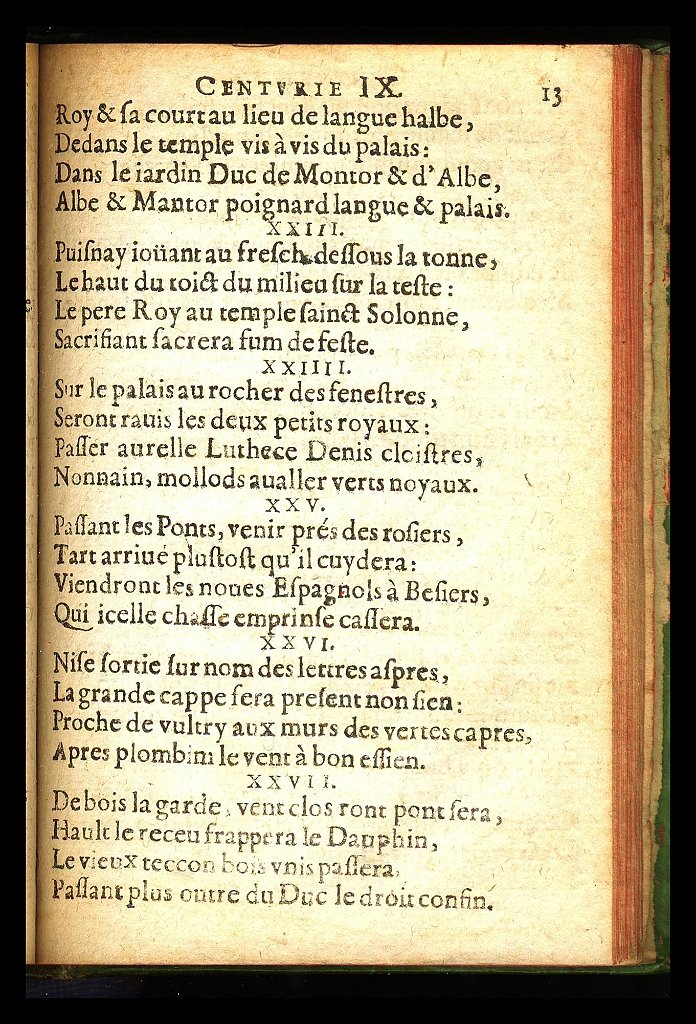 CENTVRIE IX. 13
Roy & ſa court au lieu de langue halbe,
Dedans le temple vis à vis du palais:
Dans le iardin Duc de Montor & d'Albe,
Albe & Mantor poignard langue & palais.
XXIII.
Puiſnay ioüant au freſch deſſous la tonne,
Le haut du toict du milieu ſur la teſte:
Le pere Roy au temple ſainct Solonne,
Sacrifiant ſacrera fum de feſte.
XXIIII.
Sur le palais au rocher des feneſtres,
Seront rauis les deux petits royaux:
Paſſer aurelle Luthece Denis cloiſtres,
Nonnain, mollods aualler verts noyaux.
XXV.
Paſſant les Ponts, venir prés des roſiers,
Tart arriué pluſtoſt qu'il cuydera:
Viendront les noues Eſpagnols à Beſiers,
Qui icelle chaſſe emprinſe caſſera.
XXVI.
Niſe ſortie ſur nom des lettres aſpres,
La grande cappe fera preſent non ſien:
Proche de vultry aux murs des vertes capres,
Apres plombim le vent à bon eſſien.
XXVII.
De bois la garde, vent clos ront pont ſera,
Hault le receu frappera le Dauphin,
Le vieux teccon bois vnis paſſera,
Paſſant plus outre du Duc le droit confin.